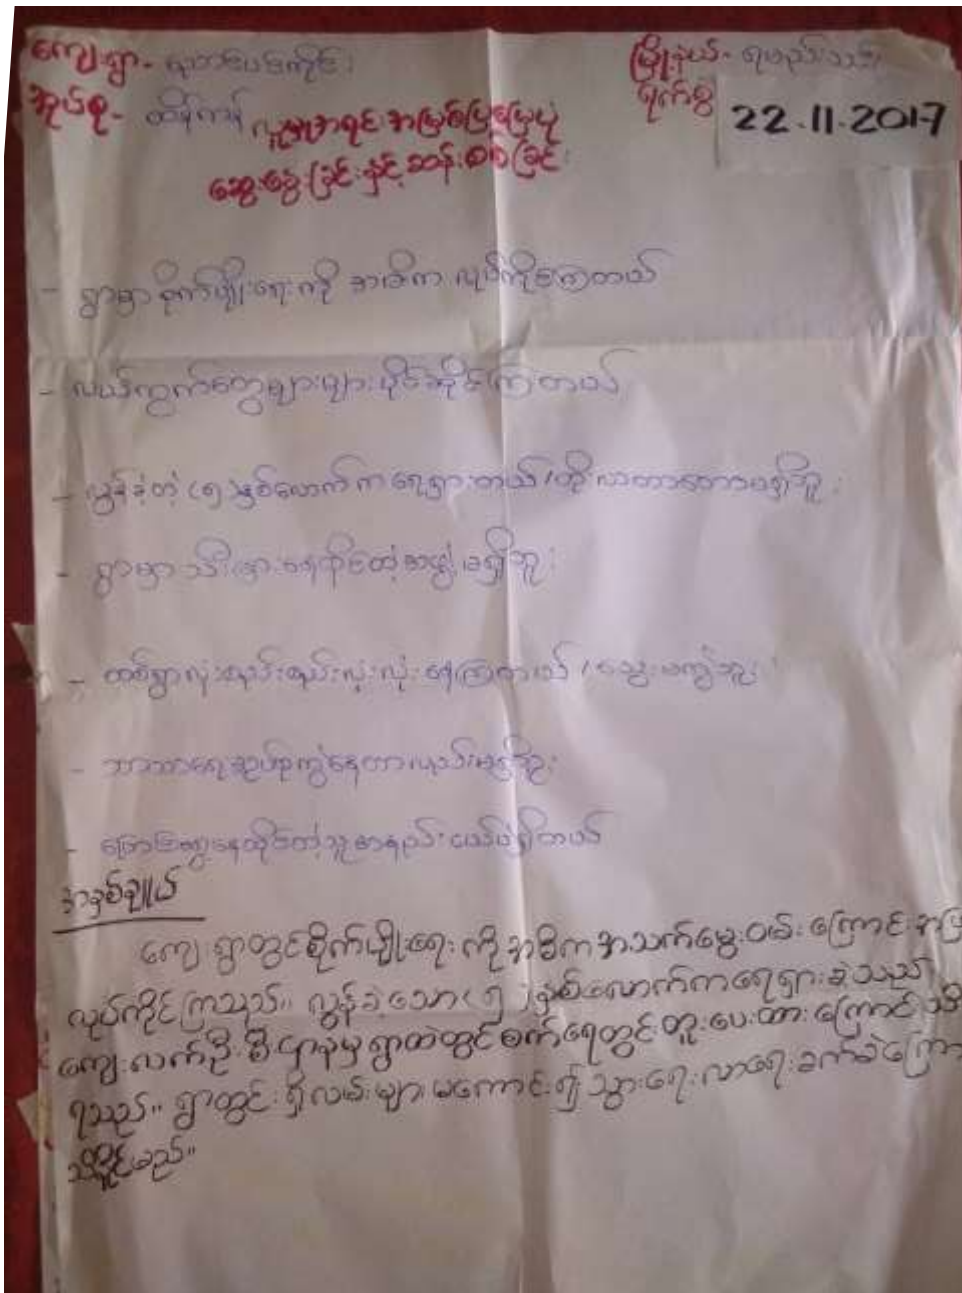 ကျေးရွာ- ရွာတင်ပင်ကိုင်း မြို့နယ်- ရမည်းသင်း
အုပ်စု- ထိန်ကန် ရက်စွဲ 22.11.2017
လူမှုအရင်းအမြစ်ပြမြေပုံ
ဆွေးနွေးခြင်းနှင့်ဆန်းစစ်ခြင်း
- ရွာမှာစိုက်ပျိုးရေးကို အဓိက လုပ်ကိုင်ကြတယ်
- လယ်ကွက်တွေများများပိုင်ဆိုင်ကြတယ်
- လွန်ခဲ့တဲ့ (၅) နှစ်လောက်က ရေရှားတယ် /
- ရွာမှာ သီးခြားနေထိုင်တဲ့အဖွဲ့ မရှိဘူး
- တစ်ရွာလုံးစည်းစည်းလုံးလုံး နေကြတယ် / သွေးမကွဲဘူး
- ဘာသာရေးအုပ်စုကွဲနေတာလည်းမရှိဘူး
- ပြောင်းရွှေ့နေထိုင်တဲ့သူအနည်းငယ်ပဲရှိတယ်
အနှစ်ချုပ်
ကျေးရွာတွင်စိုက်ပျိုးရေးကိုအဓိကအသက်မွေးဝမ်းကြောင်း
လုပ်ကိုင်ကြသည်။ လွန်ခဲ့သော (၅) နှစ်လောက်ကရေရှားခဲ့သည်
ကျေးလက်ဦးစီးဌာနမှရွာထဲတွင်စက်ရေတွင်းတူးပေးထားကြောင်း
ရသည်။ ရွာတွင်းရှိလမ်းများမကောင်း၍သွားရေးလာရေးခက်ခဲကြော